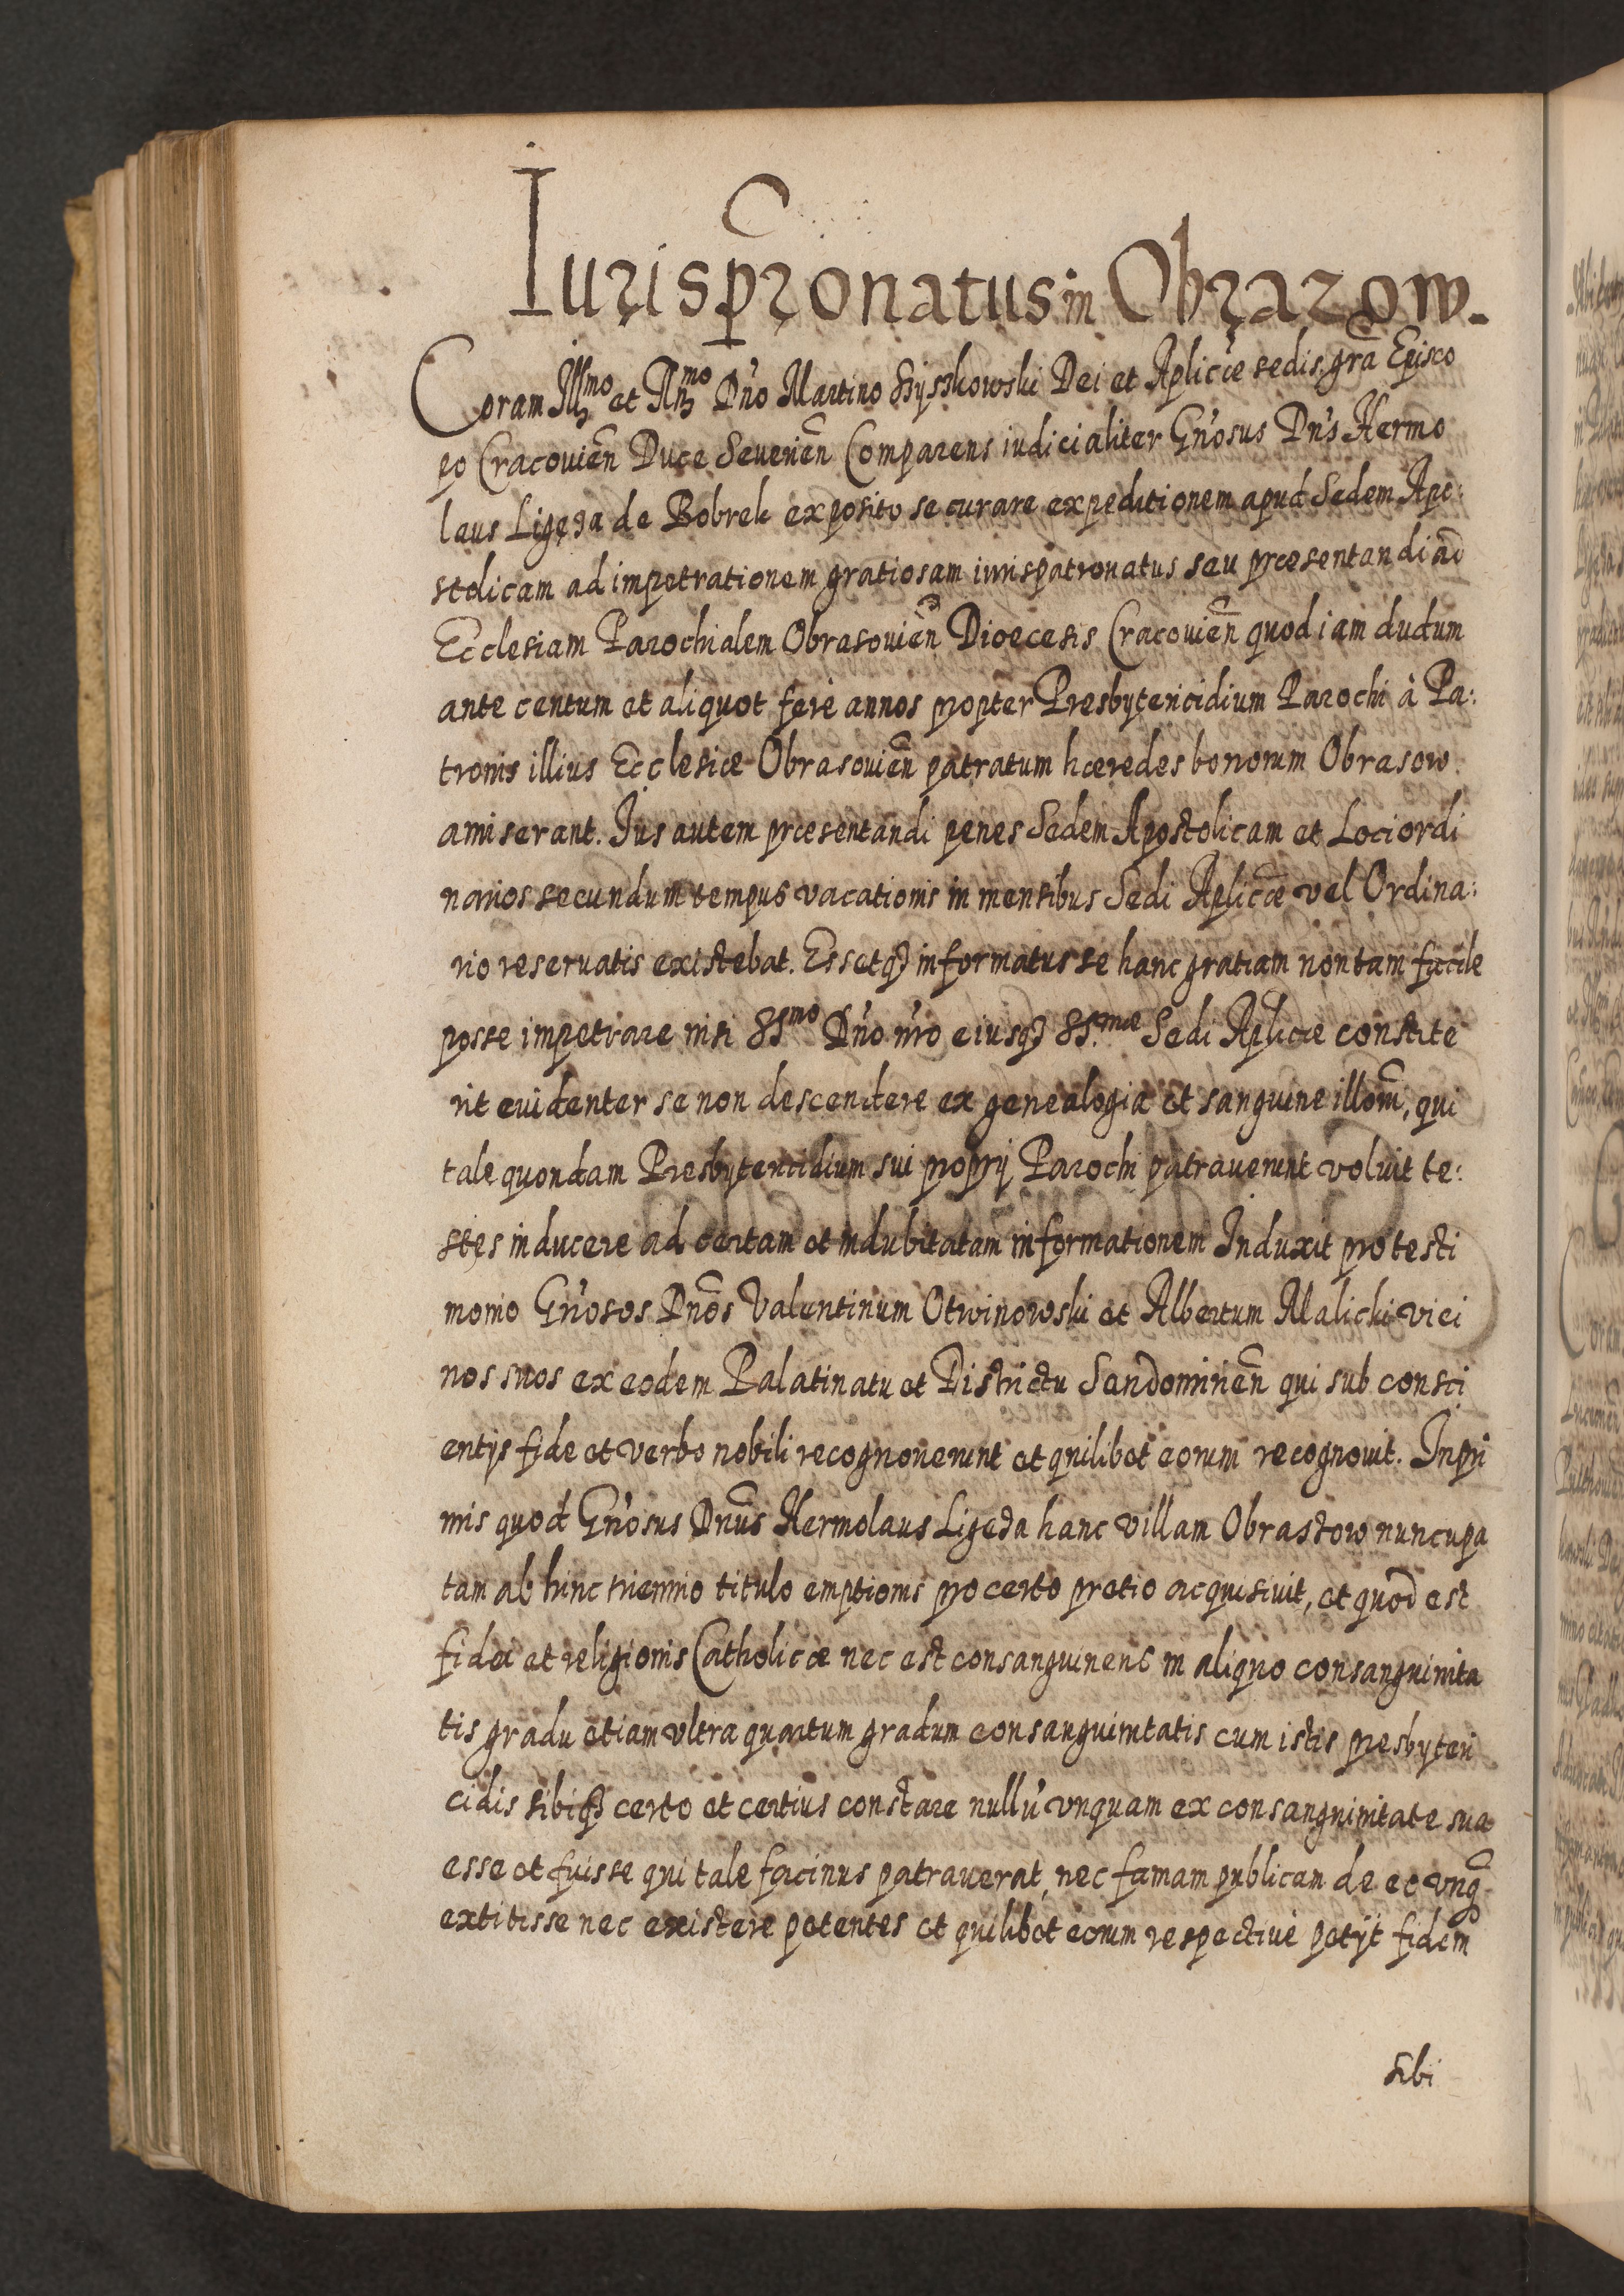 Iurispr̃onatus in Obrazow.
Coram Illmo et Rndmo Dño Martino Szyszkowski Dei et Aplicæ sedis grã Episco
po Cracouieñ Duce Seuerieñ Comparens iudicialiter Gñosus Dñs Hermo
laus Ligęza de Bobrek exposito se curare expeditionem apud Sedem Apo:
stolicam ad impetrationem gratiosam iurispatronatus seu præsentandi ad
Ecclesiam Parochialem Obrasouieñ Dioecesis Cracouieñ quod iam dudum
ante centum et aliquot ferè annos propter Presbytericidium Parochi à Pa:
tronis illius Ecclesiæ Obrasouieñ patratum hæredes bonorum Obrasow
amiserant. Jus autem præsentandi penes Sedem Apostolicam et Loci ordi
narios secundum tempus vacationis in mensibus Sedi Aplicæ vel Ordina:
rio reseruatis existebat. Essetq3 informatus se hanc gratiam non tam facile
posse impetrare nisi SSmo Dño ñro eiusq3 SS.mæ Sedi Aplicæ constite
rit euidenter se non descendere ex genealogia et sanguine illom̃, qui
tale quondam Presbytericidium sui proprij Parochi patrauerunt voluit te:
stes inducere ad certam et indubitatam informationem Induxit pro testi
monio Gñosos Dños Valentinum Otwinowski et Albertum Malicki vici
nos suos ex eodem Palatinatu et Districtu Sandomirieñ qui sub consci
entijs fide et verbo nobili recognouerunt et quilibet eorum recognouit. Inpri
mis quod Gñosus Dnũs Hermolaus Ligęza hanc villam Obrazow nuncupa
tam ab hinc triennio titulo emptionis pro certo pretio acquisiuit, et quod est
fidei et religionis Catholicæ nec est consanguineus in aliquo consanguinita
tis gradu etiam vltra quartum gradum consanguinitatis cum istis presbyteri
cidis sibiq3 certo et certius constare nullũ vnquam ex consanguinitate sua
esse et fuisse qui tale facinus patrauerat, nec famam publicam de eo vnq̃
extitisse nec existere petentes et quilibet eorum respectiuè petijt fidem
sibi